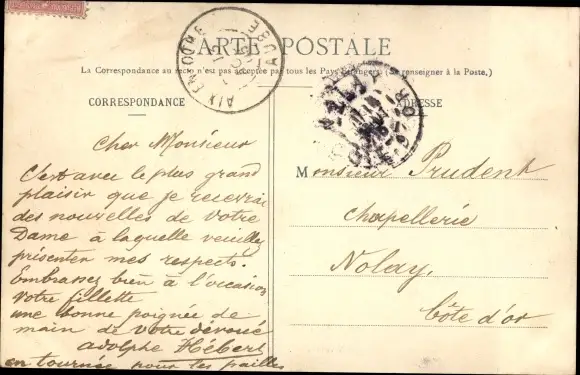 CARTE POSTALE
La Correspondance au recto n'est pas acceptée par tous les Pays étrangers (Se renseigner à la Poste.)
CORRESPONDANCE
ADRESSE
AIX EN OTHE
AUBE
NOLAY
Cher Monsieur
C'est avec le plus grand
plaisir que je recevrai
des nouvelles de votre
Dame à laquelle veuillez
présenter mes respects.
Embrassez bien à l'occasion
votre fillette
une bonne poignée de
main de votre dévoué
adolphe Hébert
en tournée pour les pailles
Monsieur Prudent
chapellerie
Nolay,
Côte d'or